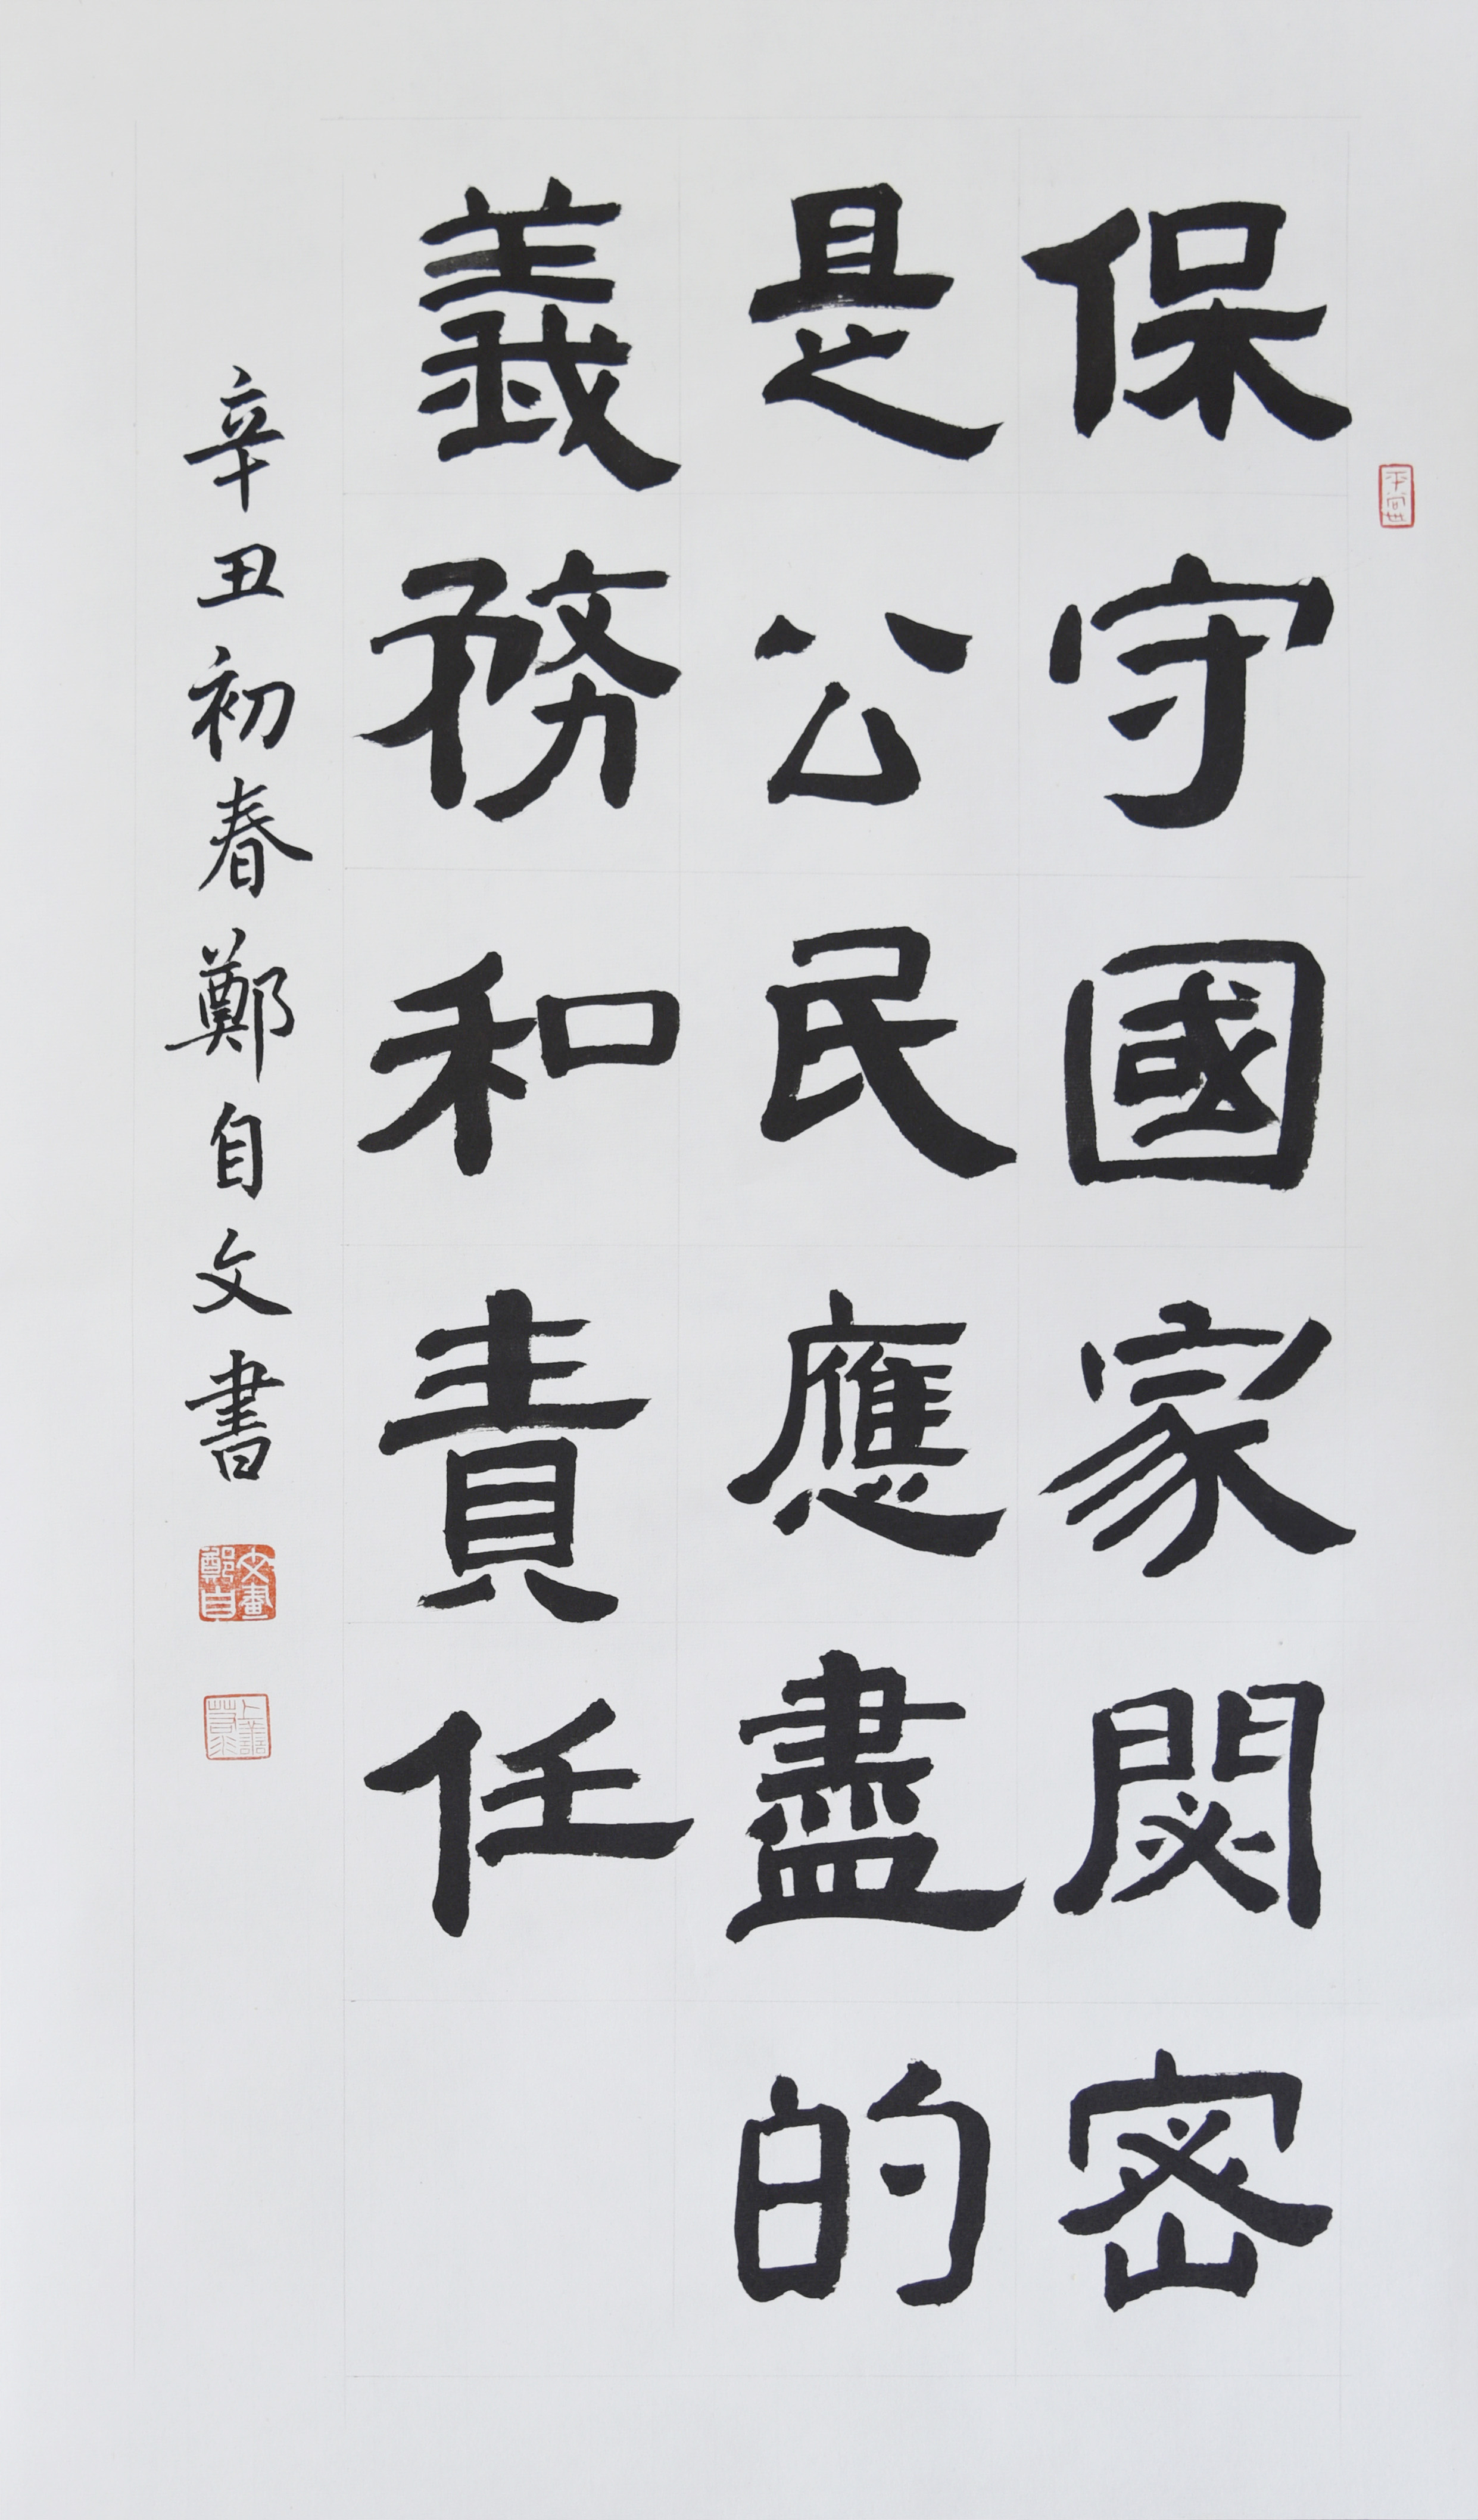 保守國家閟密
是公民應盡的
義務和責任
辛丑初春鄭自文書
上善若水